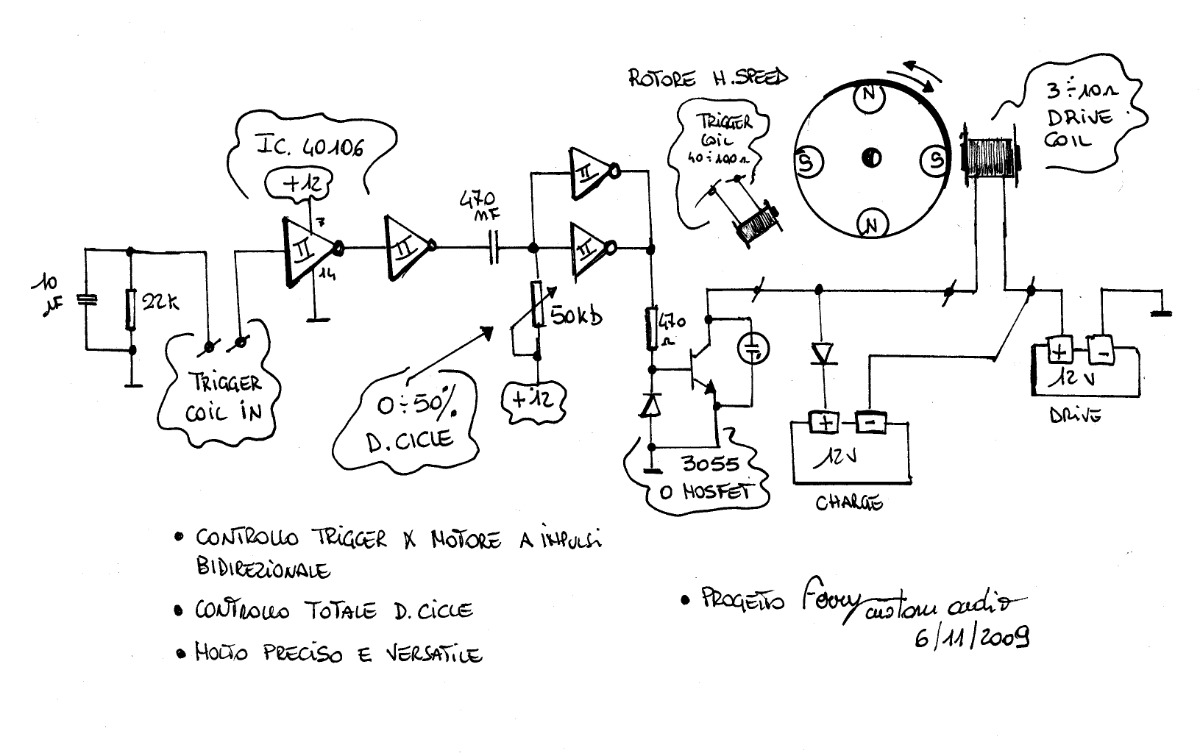 ROTORE H.SPEED
TRIGGER
COIL
40÷100Ω
N
S
S
N
3÷10Ω
DRIVE
COIL
IC. 40106
+12
7
14
470
nF
10
µF
22K
TRIGGER
COIL IN
50kb
+12
0÷50%
D. CICLE
470
Ω
3055
O MOSFET
+ -
12V
CHARGE
+ -
12V
DRIVE
• CONTROLLO TRIGGER X MOTORE A IMPULSI
BIDIREZIONALE
• CONTROLLO TOTALE D. CICLE
• MOLTO PRECISO E VERSATILE
• PROGETTO Ferry custom audio
6/11/2009